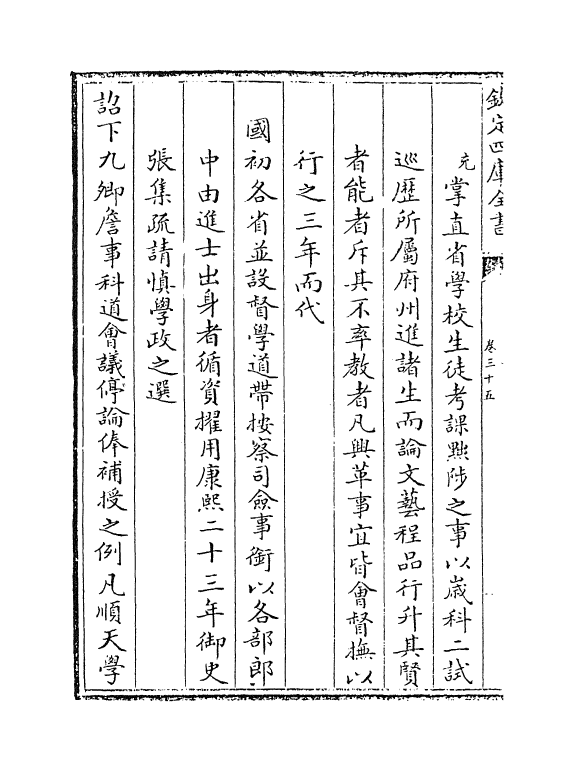 欽定四庫全書
卷三十五
充掌直省學校生徒考課黜陟之事以嵗科二試
巡歴所屬府州進諸生而論文藝程品行升其賢
者能者斥其不率教者凡興革事宜皆會督撫以
行之三年而代
國初各省並設督學道帶按察司僉事銜以各部郎
中由進士出身者循資擢用康熙二十三年御史
張集疏請慎學政之選
詔下九卿詹事科道會議停論俸補授之例凡順天學